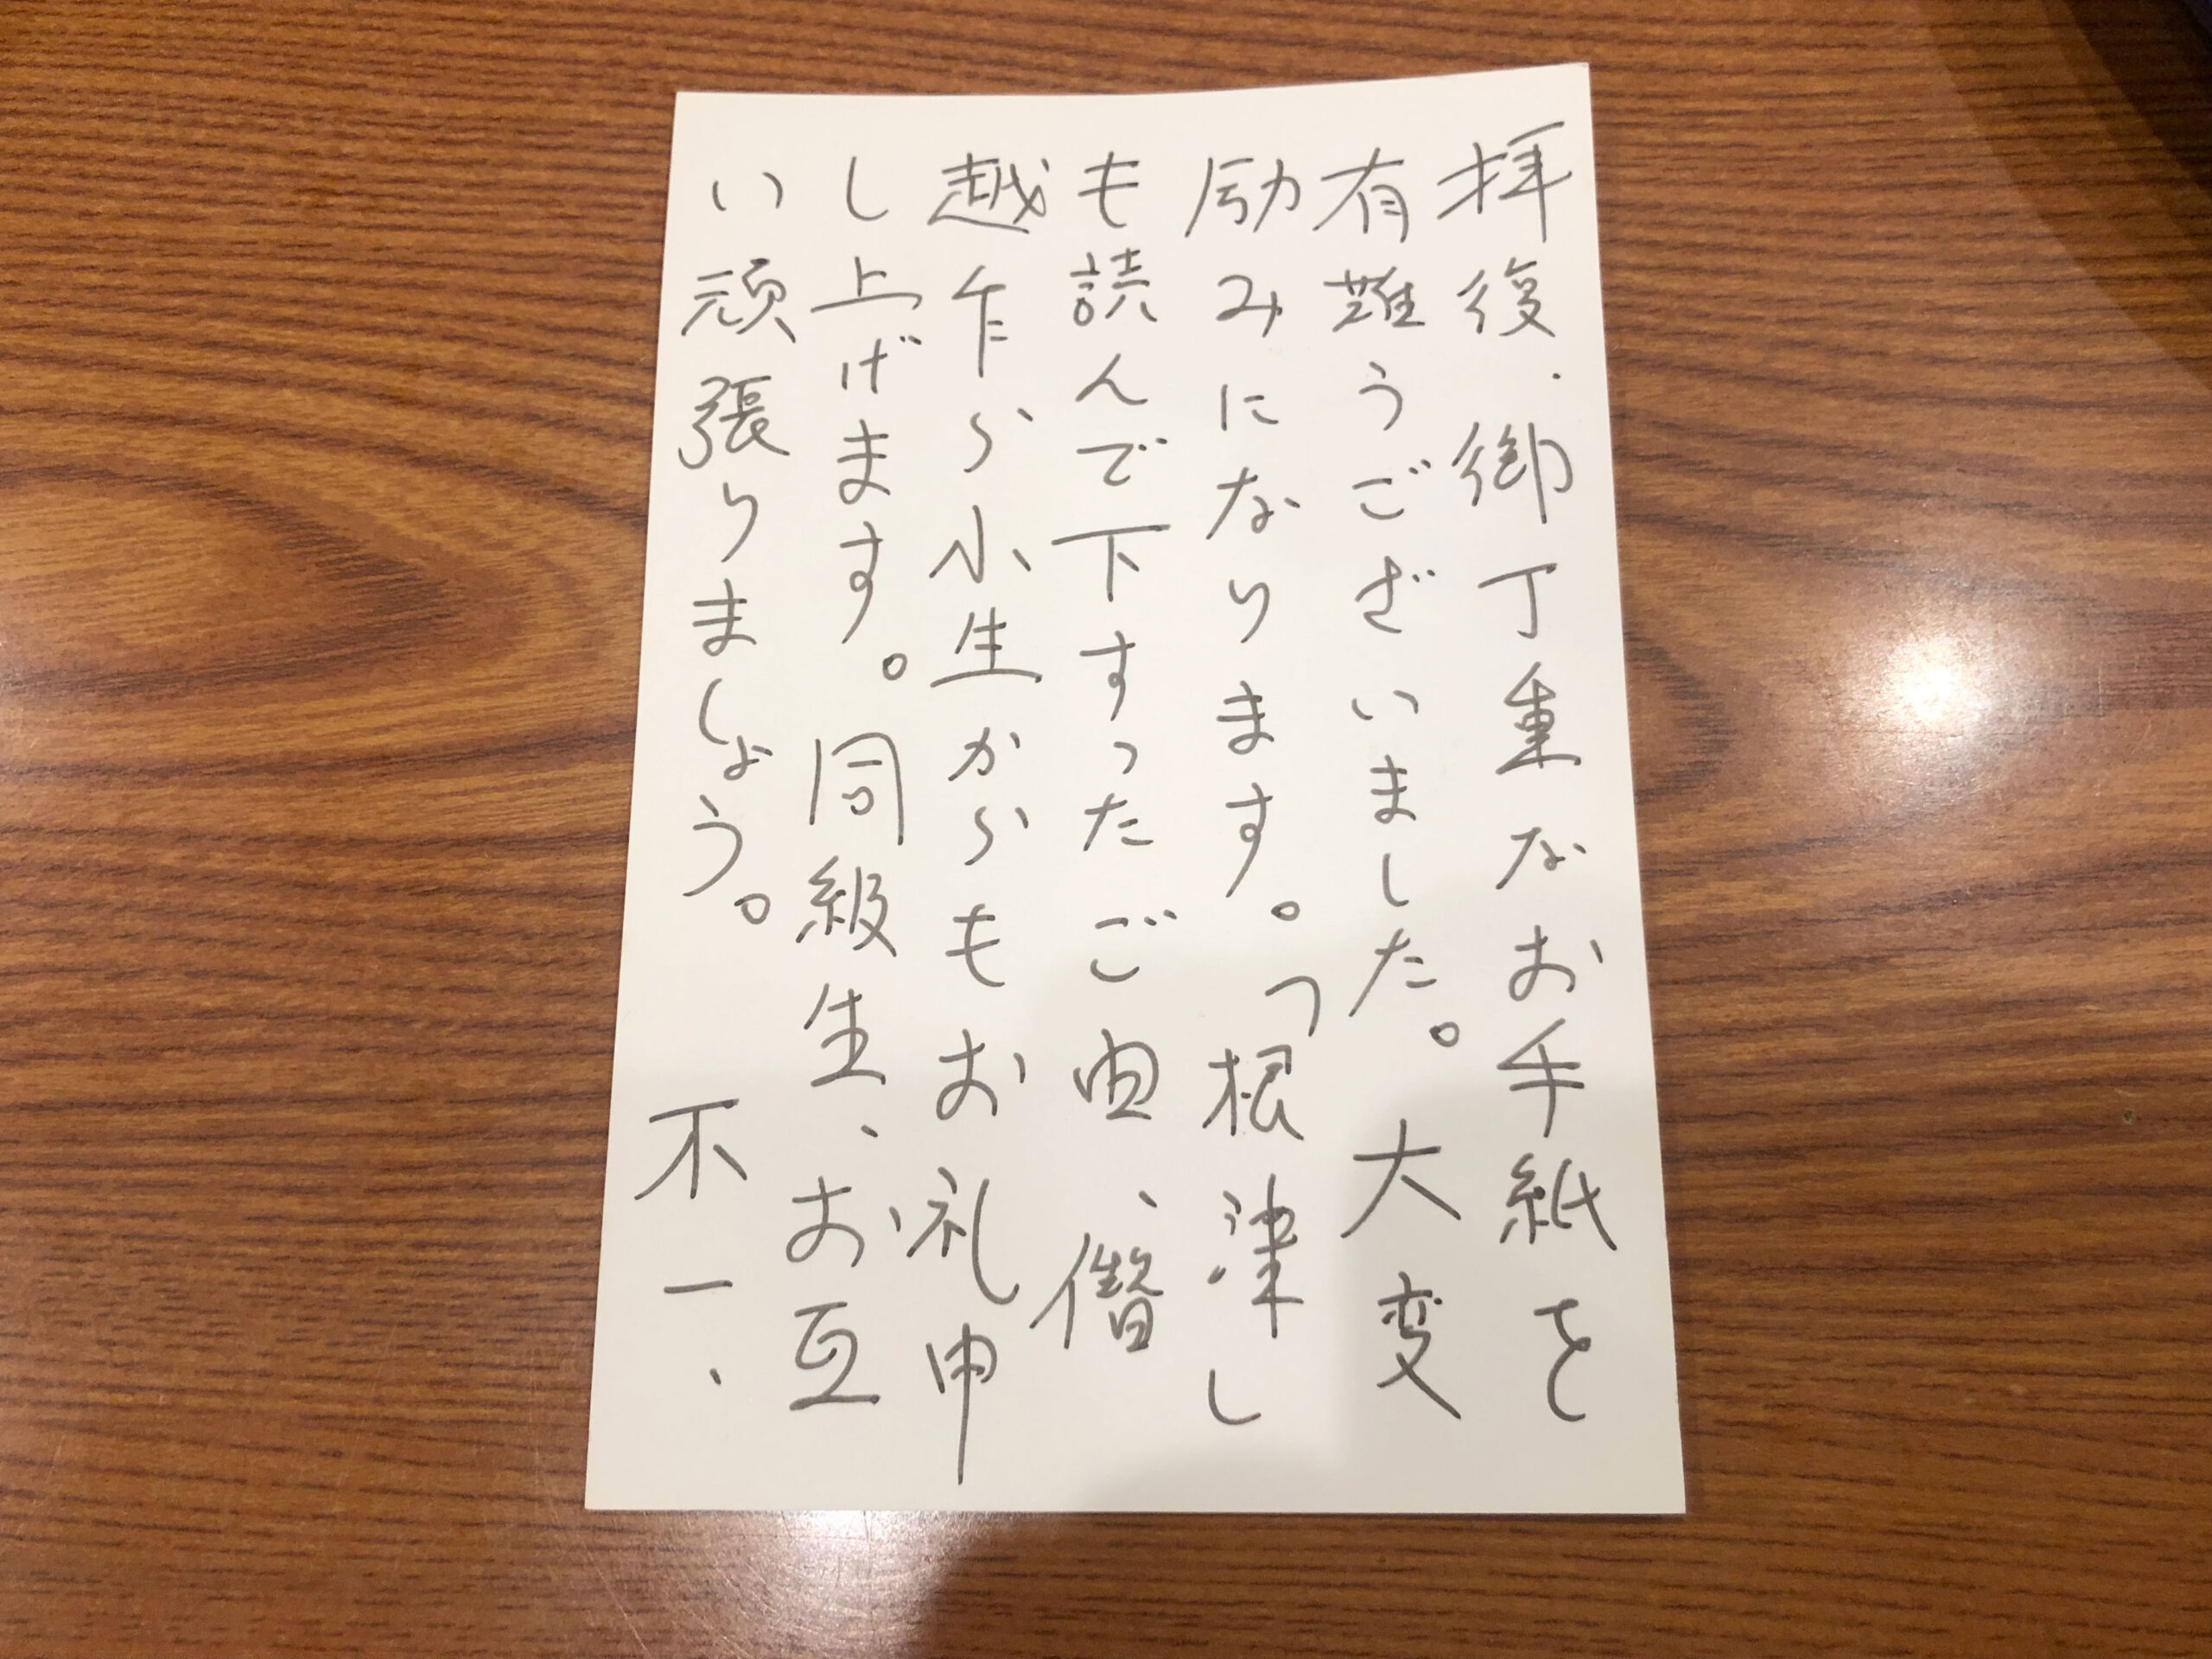 拝復、御丁重なお手紙を
有難うございました。大変
励みになります。「根津し
も読んで下すったご由、僭
越乍ら小生からもお礼申
し上げます。同級生、お互
い頑張りましょう。 不一、